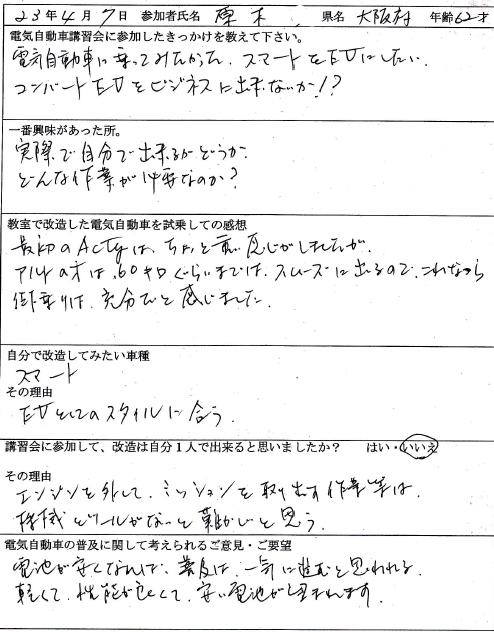 23年4月7日 参加者氏名 原木 県名 大阪府 年齢62才
電気自動車講習会に参加したきっかけを教えて下さい。
電気自動車に乗ってみたかった、スマートをEVにしたい、
コンバートEVをビジネスに出来ないか!?
一番興味があった所。
実際で自分で出来るかどうか
どんな作業が必要なのか?
教室で改造した電気自動車を試乗しての感想
最初のActyは、ちょっと重い感じがしましたが、
アルトの方は、60キロぐらいまでは、スムーズに出るので、これなら
街乗りは、充分だと感じました。
自分で改造してみたい車種
スマート
その理由
EVとしてのスタイルに合う。
講習会に参加して、改造は自分1人で出来ると思いましたか? はい・いいえ
その理由
エンジンを外して、ミッションを取り出す作業等は、
機械とツールがないと難かしいと思う。
電気自動車の普及に関して考えられるご意見・ご要望
電池が安くなれば、普及は、一気に進むと思われる。
軽くて、性能が良くて、安い電池が望まれます。